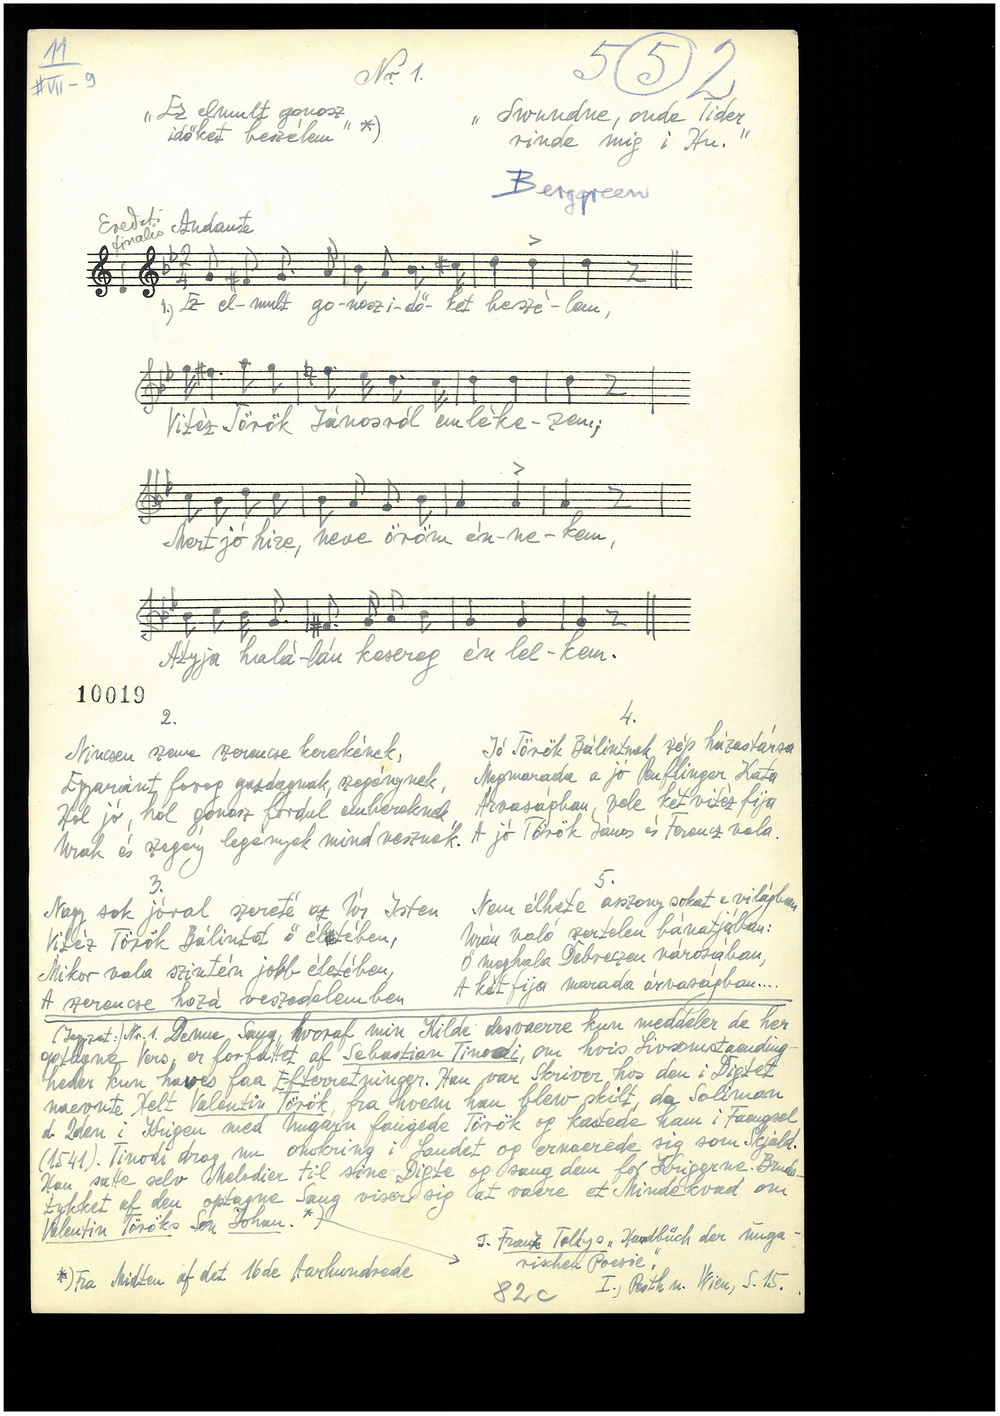 11
#VII-9
Nr. 1.
5 5 2
"Ez elmult gonosz
időket beszélem" *)
"Svundne, onde Tider
rinde mig i Hu."
Berggreen
Eredeti
finalis
Andante
2
4
1.) Ez el-mult go-nosz i-dő-ket beszé-lem,
Vitéz Török Jánosról emléke-zem;
Mert jó híre, neve öröm én-ne-kem,
Atyja halá-lán kesereg én lel-kem.
10019
2.
Nincsen szeme szerencse kerekének,
Egyaránt forog gazdagnak, szegénynek,
Hol jó, hol gonosz fordul embereknek,
Urak és szegény legények mind vesznek.
3.
Nagy sok jóval szereté az Úr Isten
Vitéz Török Bálintot ő éltében,
Mikor vala szintén jobb életében,
A szerencse hozá veszedelemben
4.
Jó Török Bálintnak szép házastársa
Megmarada a jó Pemflinger Kata
Árvaságban, vele két vitéz fija
A jó Török János és Ferencz vala.
5.
Nem élhete asszony sokat e világban
Urán való szertelen bánatjában:
Ő meghala Debreczen városában,
A két fija marada árvaságban....
(Jegyzet:) Nr. 1. Denne Sang, hvoraf min Kilde desvaerre kun meddeler de her
optagne Vers, er forfattet af Sebastian Tinodi, om hvis Livsomstaendig-
heder kun haves faa Efterretninger. Han var Skriver hos den i Digtet
naevnte Helt Valentin Török, fra hvem han blev skilt, da Soliman
d. 2den i Krigen med Ungarn fangede Török og kastede ham i Faengsel
(1541). Tinodi drog nu omkring i Landet og ernaerede sig som Skjald.
Han satte selv Melodier til sine Digte og sang dem for Krigerne. Brud-
stykket af den optagne Sang viser sig at vaere et Mindekvad om
Valentin Töröks Søn Johan. *)
*) Fra Midten af det 16de Aarhundrede
S. Franz Toldys "Handbuch der unga-
rischen Poesie,"
I., Pesth u. Wien, S. 15.
82c